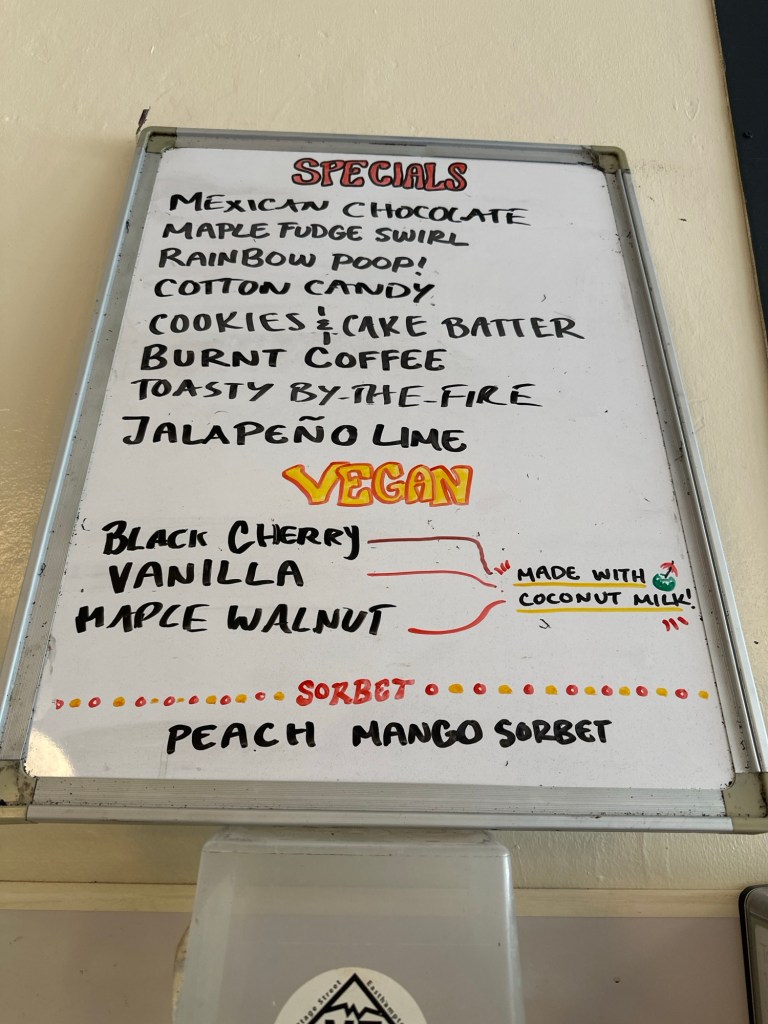 SPECIALS
MEXICAN CHOCOLATE
MAPLE FUDGE SWIRL
RAINBOW POOP!
COTTON CANDY
COOKIES & CAKE BATTER
BURNT COFFEE
TOASTY BY-THE-FIRE
JALAPEÑO LIME
VEGAN
BLACK CHERRY
VANILLA
MAPLE WALNUT
MADE WITH
COCONUT MILK!
SORBET
PEACH MANGO SORBET